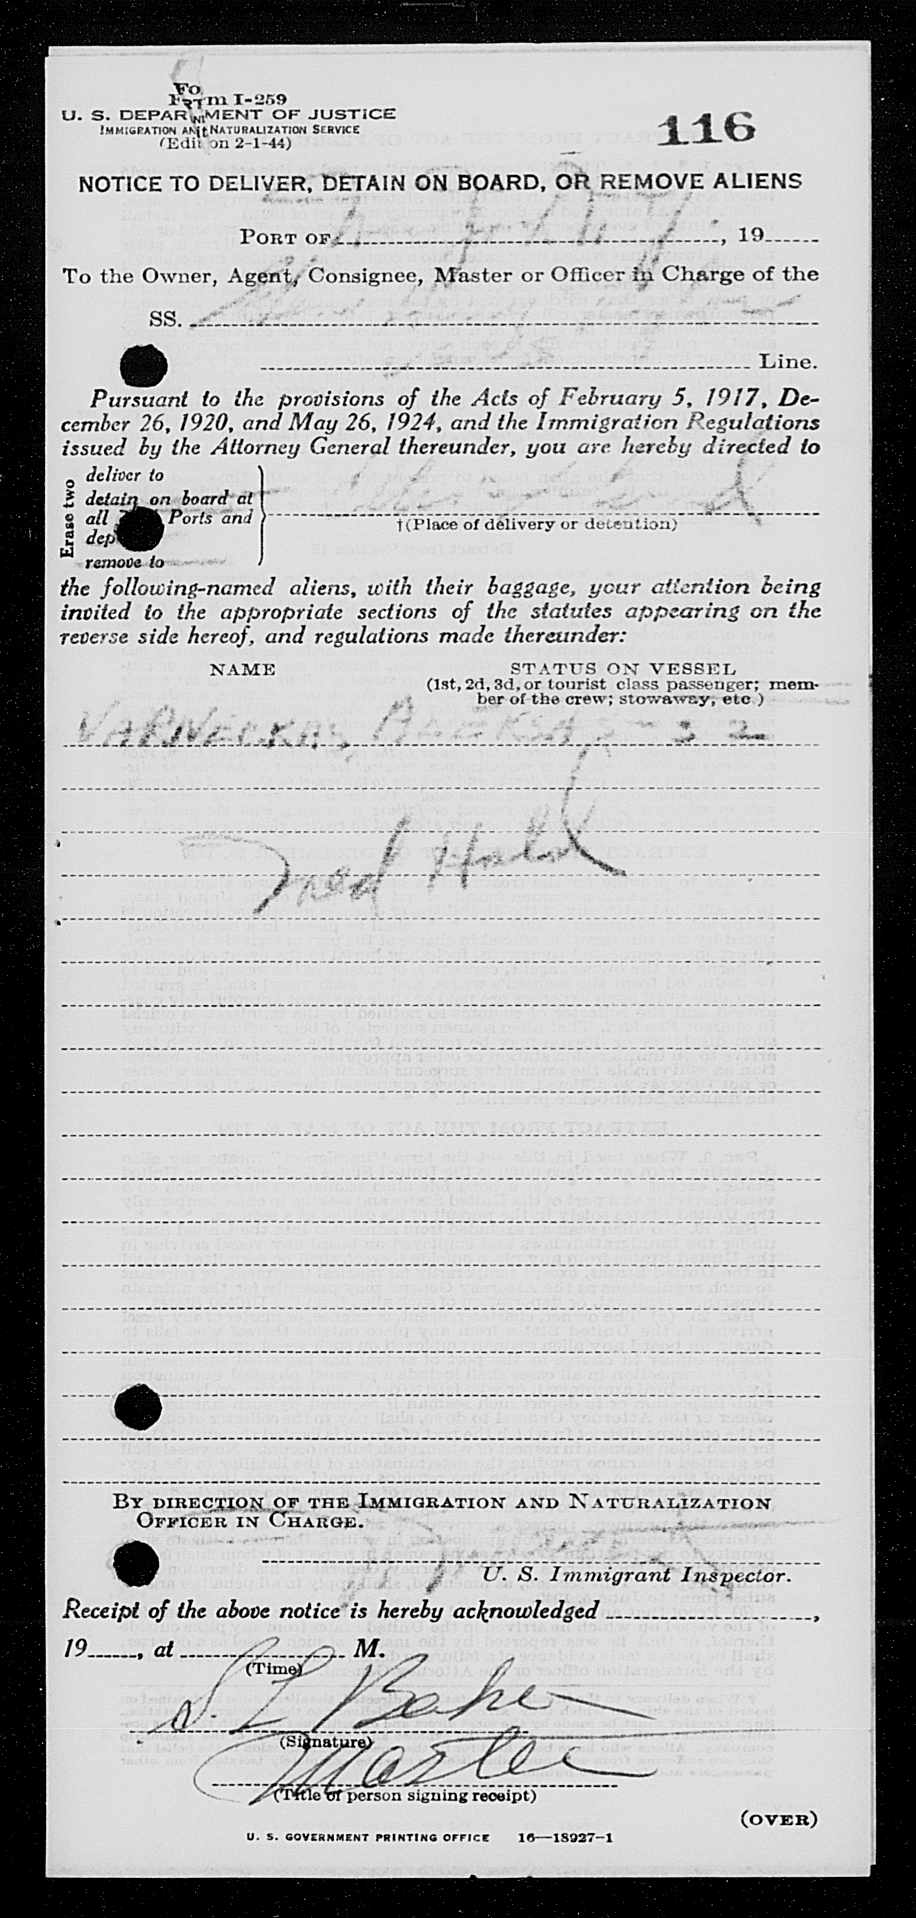 Form I-259
U. S. DEPARTMENT OF JUSTICE
IMMIGRATION AND NATURALIZATION SERVICE
(Edition 2-1-44)
116
NOTICE TO DELIVER, DETAIN ON BOARD, OR REMOVE ALIENS
PORT OF , 19
To the Owner, Agent, Consignee, Master or Officer in Charge of the
SS.
Line.
Pursuant to the provisions of the Acts of February 5, 1917, De-
cember 26, 1920, and May 26, 1924, and the Immigration Regulations
issued by the Attorney General thereunder, you are hereby directed to
Erase two
deliver to
detain on board at
all Ports and
dep
remove to
†(Place of delivery or detention)
the following-named aliens, with their baggage, your attention being
invited to the appropriate sections of the statutes appearing on the
reverse side hereof, and regulations made thereunder:
NAME STATUS ON VESSEL
(1st, 2d, 3d, or tourist class passenger; mem-
ber of the crew; stowaway, etc.)
VARNECKAS, ALEKSAS - 32
Med Hold
BY DIRECTION OF THE IMMIGRATION AND NATURALIZATION
OFFICER IN CHARGE.
U. S. Immigrant Inspector.
Receipt of the above notice is hereby acknowledged ,
19 , at M.
(Time)
S. L. Baker
(Signature)
Master
(Title of person signing receipt)
(OVER)
U. S. GOVERNMENT PRINTING OFFICE 16—18927-1